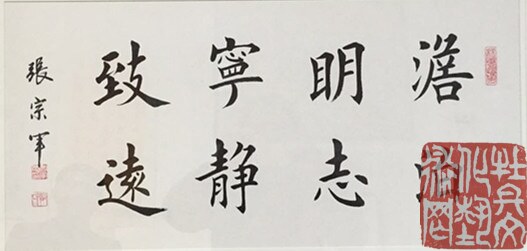 澹
明志
寧静
致遠
張宗軍